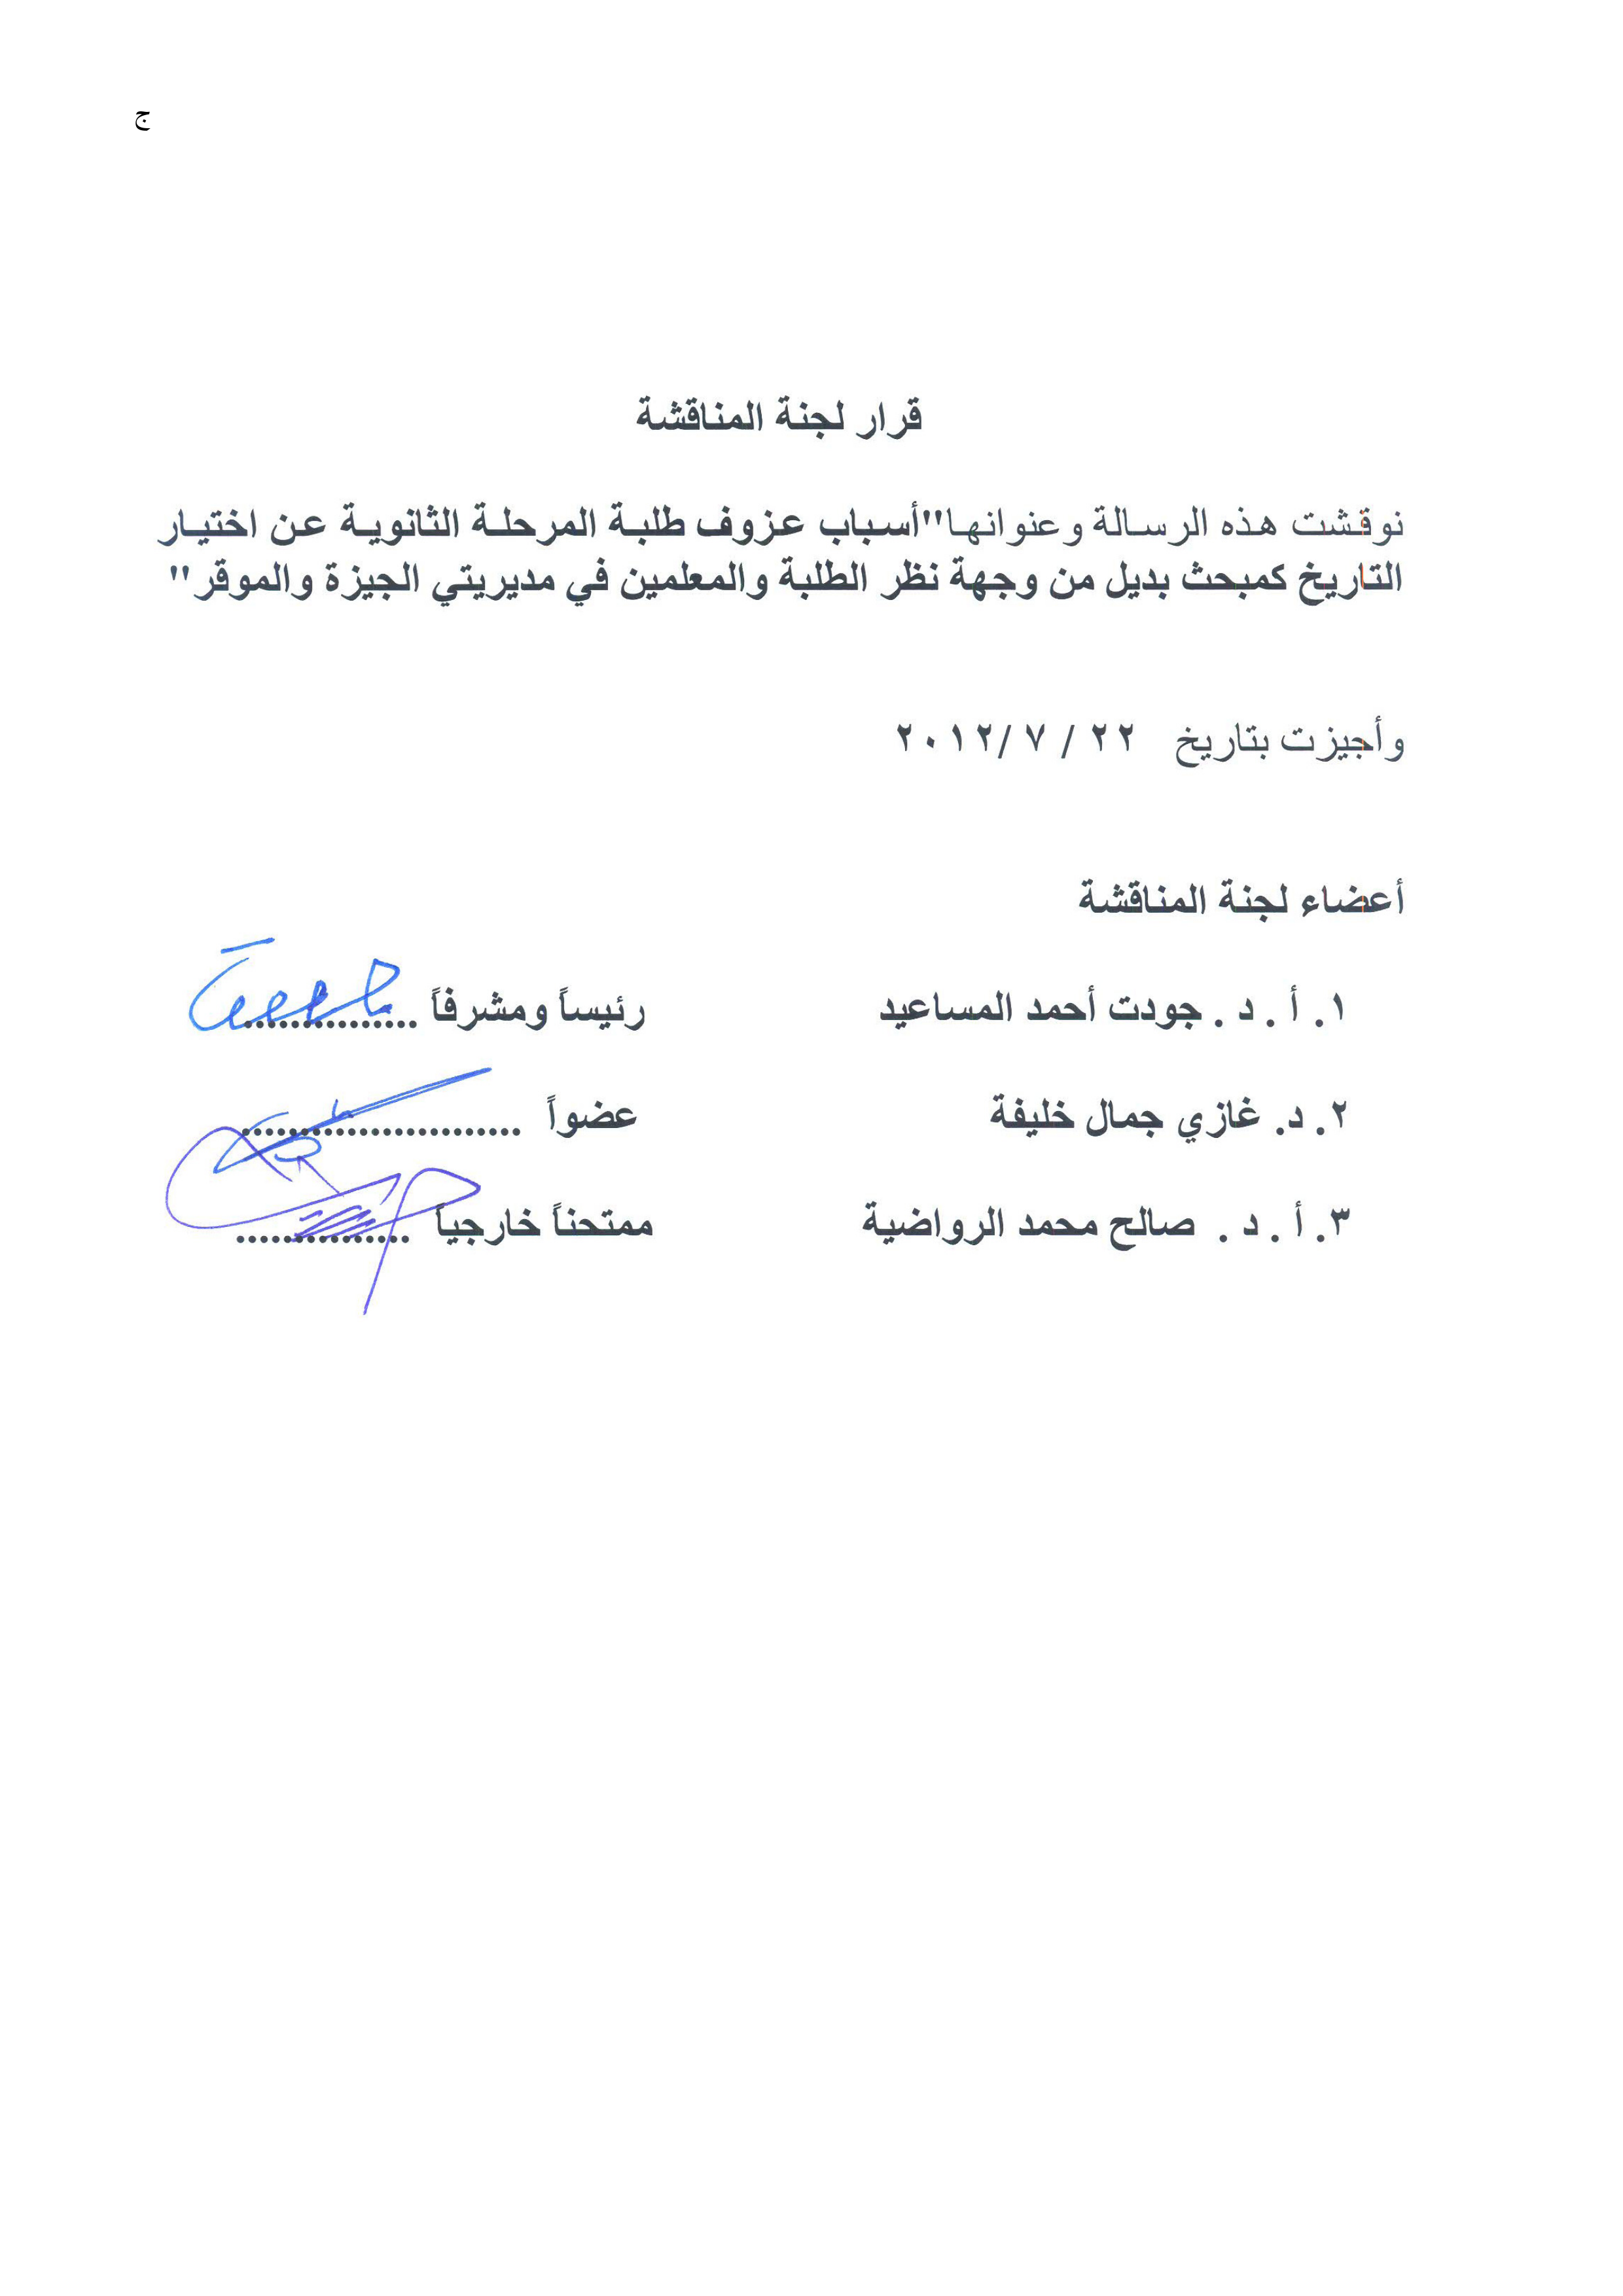 ج
قرار لجنة المناقشة
نوقشت هذه الرسالة وعنوانها"أسباب عزوف طلبة المرحلة الثانوية عن اختيار
التاريخ كمبحث بديل من وجهة نظر الطلبة والمعلمين في مديريتي الجيزة والموقر"
وأجيزت بتاريخ ٢٢ / ٧ /٢٠١٢
أعضاء لجنة المناقشة
١. أ . د . جودت أحمد المساعيد رئيساً ومشرفاً ...............
٢. د. غازي جمال خليفة عضواً ........................
٣. أ . د . صالح محمد الرواضية ممتحناً خارجياً ...............